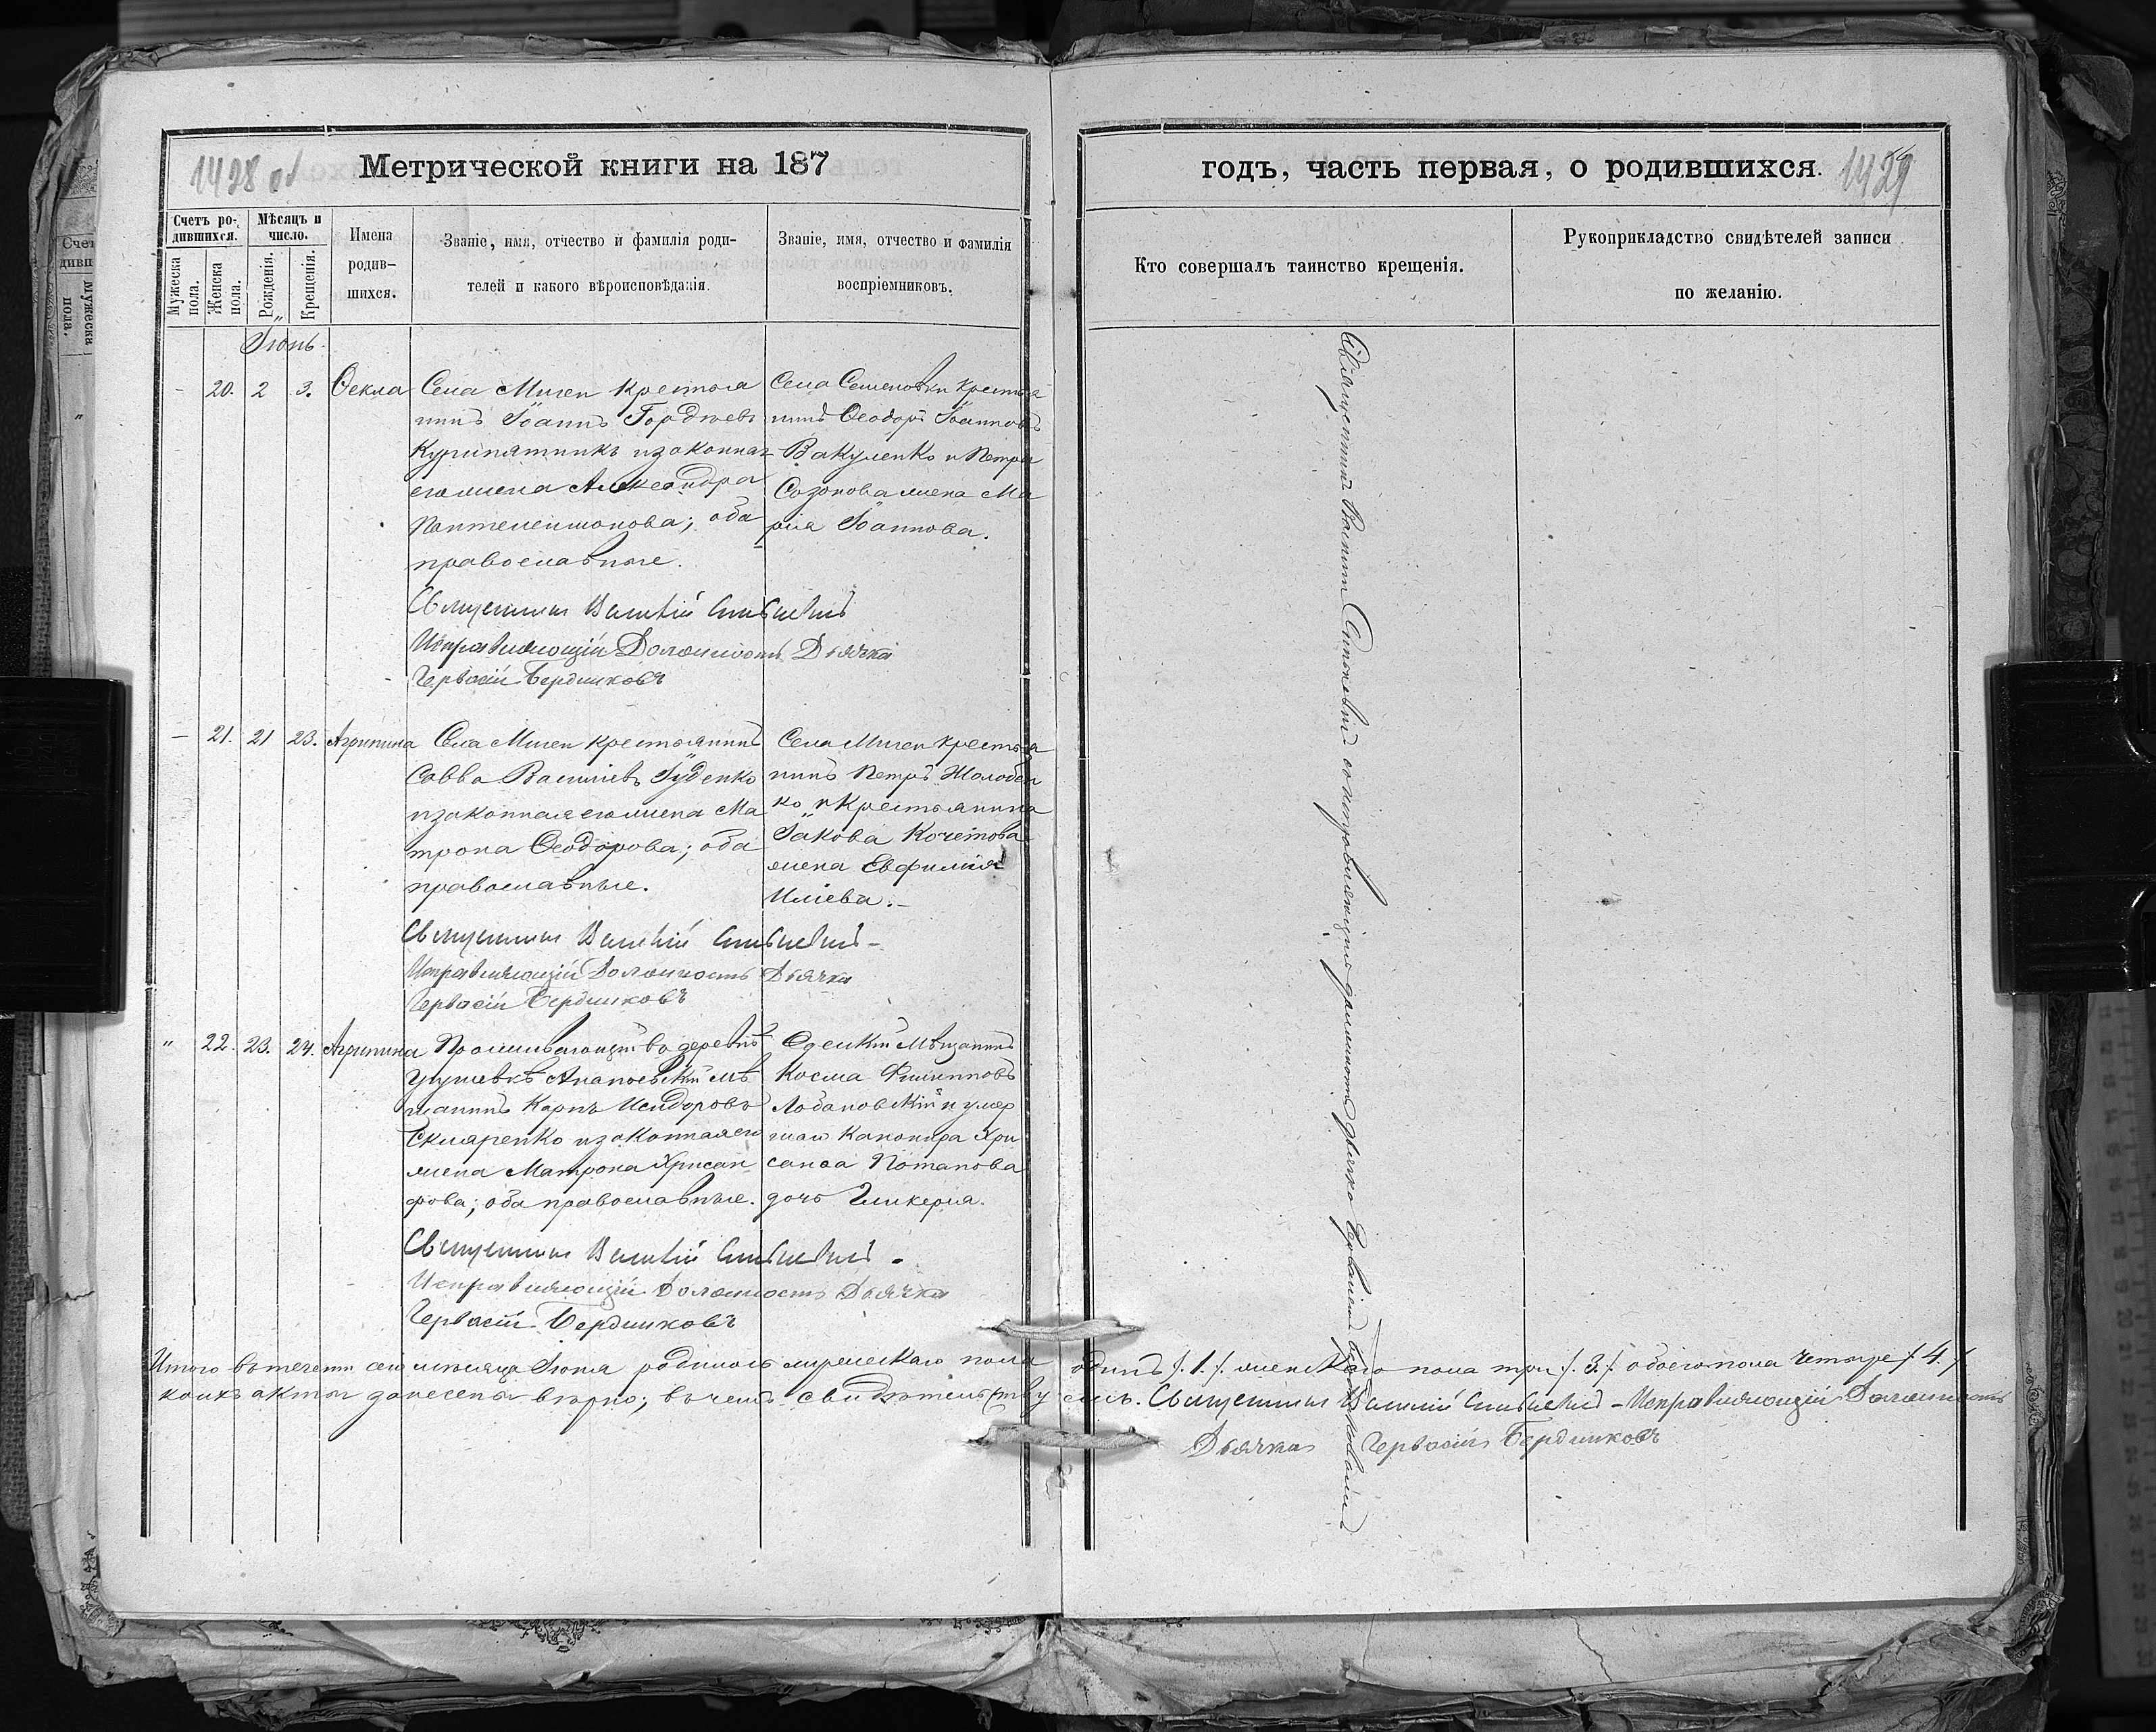 1428 об
Метрической книги на 187
Счетъ ро-
дившихся.
Мѣсяцъ и
число.
Мужеска
пола.
Женска
пола.
Рожденія.
Крещенія.
Имена
родив-
шихся.
Званіе, имя, отчество и фамилія роди-
телей и какого вѣроисповѣданія.
Званіе, имя, отчество и фамилія
воспріемниковъ.
Іюнь.
- 20. 2 3. Ѳекла
Села Мигеи крестья
нинъ Іоаннъ Гордѣевъ
Курипятникъ и законная
его жена Александра
Пантелеимонова; оба
православные.
Села Семеновки крестья
нинъ Ѳеодоръ Іоанновъ
Вакуленко и Петра
Созонова жена Ма
рія Іоаннова.
Священникъ Василій
Исправляющій Должность Дьячка
Гервасій Бердниковъ
- 21. 21 23. Агрипина
Села Мигеи крестьянинъ
Савва Василіевъ Гуденко
и законная его жена Ма
трона Ѳеодорова; оба
православные.
Села Мигеи крестья
нинъ Петръ Жолобен
ко и крестьянина
Іакова Кочетова
жена Евфимія
Иліева.-
Священникъ Василій
Исправляющій Должность Дьячка
Гервасій Бердниковъ
" 22. 23. 24. Агрипина
Проживающій въ деревнѣ
Ананьевскій мѣ
щанинъ Карпъ Исидоровъ
Скляренко и законная его
жена Матрона Хрисан
фова; оба православные.
Одескій Мѣщанинъ
Косма Филипповъ
Лобановскій и умер
шаго Канонира Хри
санфа Потапова
дочь Гликерія.
Священникъ Василій
Исправляющій Должность Дьячка
Гервасій Бердниковъ
Итого въ теченіи сего мѣсяца Іюня родилось мужескаго пола
коихъ акты занесены вѣрно; въ чемъ свидѣтельству
годъ, часть первая, о родившихся.
1429
Кто совершалъ таинство крещенія.
Рукоприкладство свидѣтелей записи
по желанію.
Священникъ Василій съ исправляющимъ должность дьячка Гервасіемъ Бердниковымъ
одинъ /.1./ женскаго пола три /.3./ обоего пола четыре /.4./
емъ. Священникъ Василій - Исправляющій Должность
Дьячка Гервасій Бердниковъ